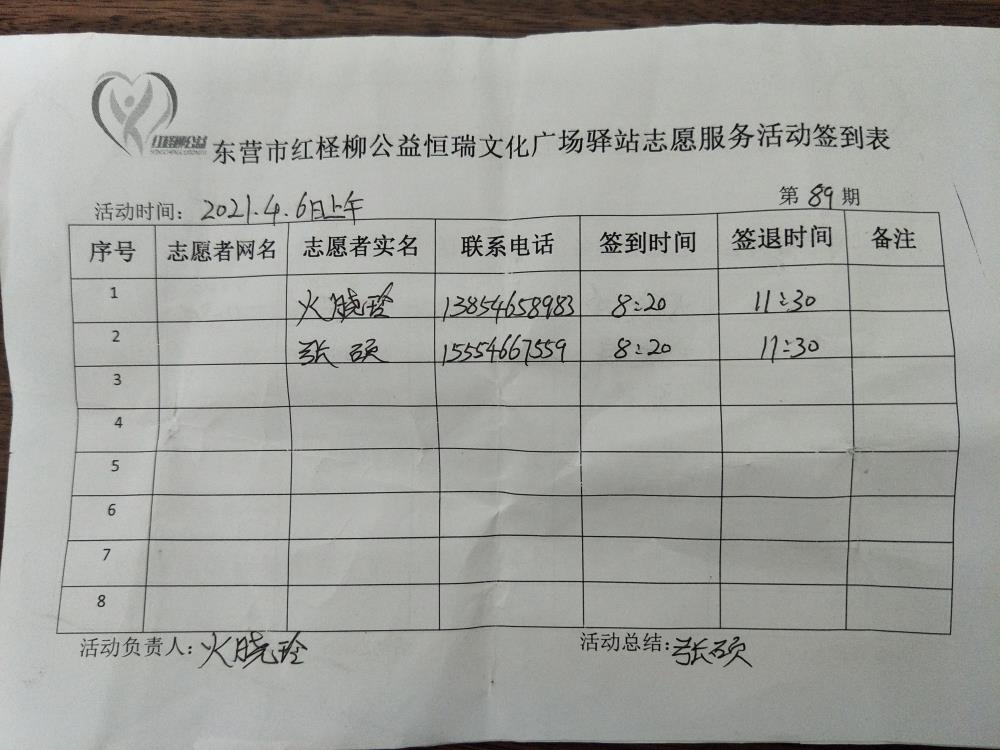 红柽柳公益
东营市红柽柳公益恒瑞文化广场驿站志愿服务活动签到表
活动时间：2021.4.6日上午 第89期
序号 志愿者网名 志愿者实名 联系电话 签到时间 签退时间 备注
1 火晓玲 13854658983 8:20 11:30
2 张硕 15554667559 8:20 11:30
3
4
5
6
7
8
活动负责人：火晓玲 活动总结：张硕